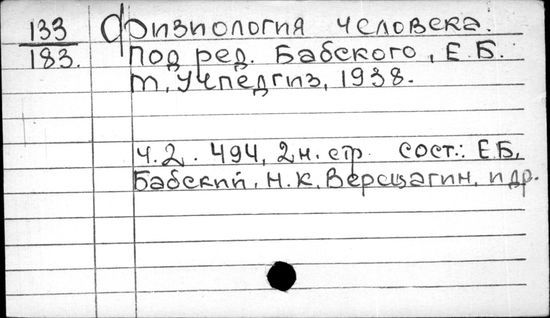 133
183.
Физиология человека.
Под ред. Бабского, Е.Б.
М, Учпедгиз, 1938.
ч.2. 494, 2 н. стр. сост.: Е.Б,
Бабский, Н.К. Верещагин, и др.